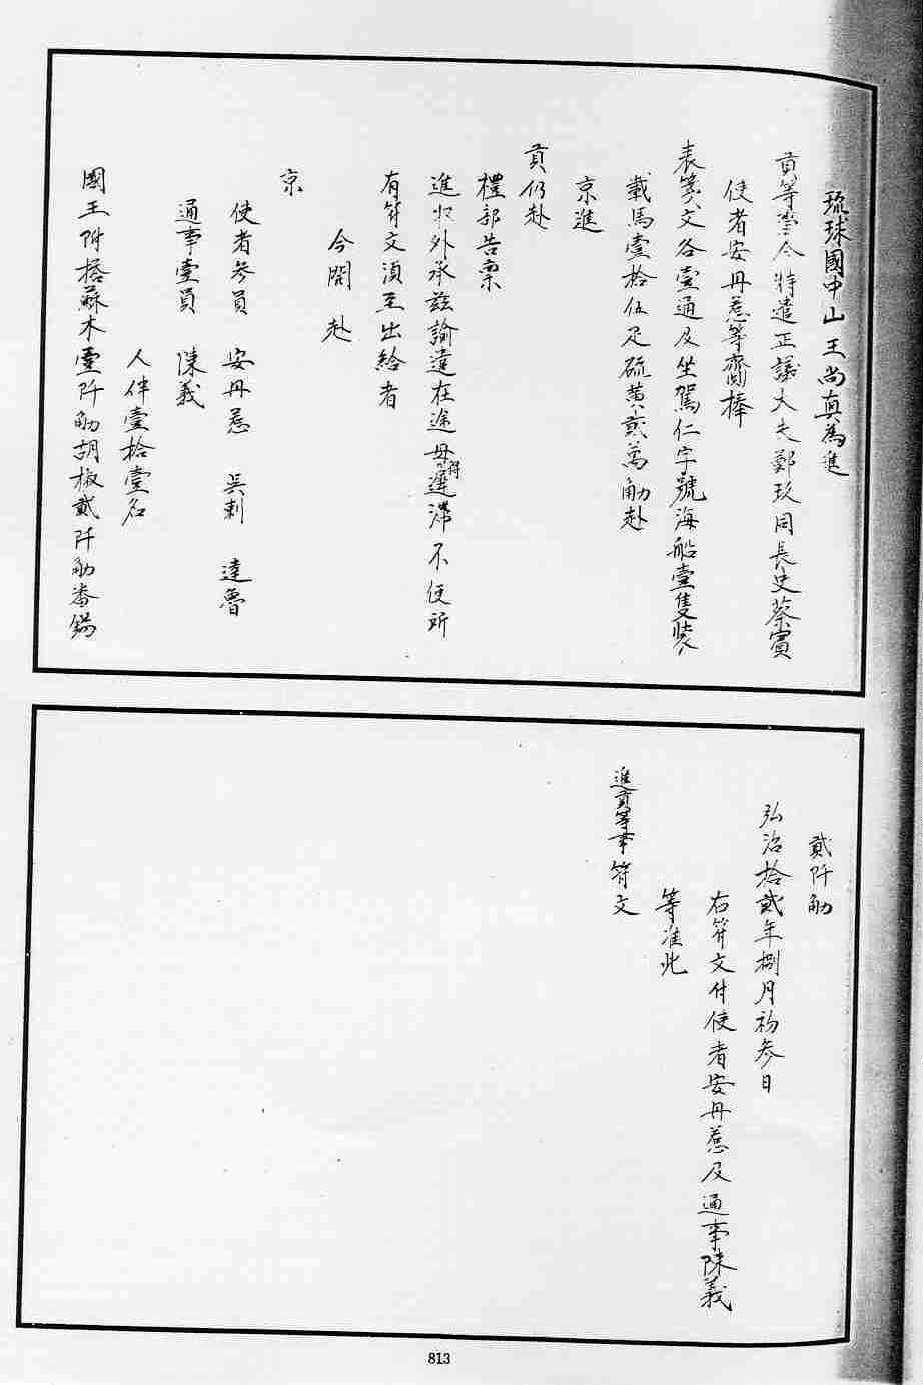 琉球國中山王尚真為進
貢等事今特遣正議大夫鄭玖同長史蔡賓
使者安丹惹等齎捧
表箋文各壹通及坐駕仁字號海船壹隻裝
載馬壹拾伍疋硫黃貳萬觔赴
京進
貢仍赴
禮部告稟
進收外承茲諭遠在途毋得遲滯不便所
有符文湏至出給者
今開赴
京
使者參員 安丹惹 吳刺 達魯
通事壹員 陳義
人伴壹拾壹名
國王附搭蘇木壹阡觔胡椒貳阡觔番錫
貳阡觔
弘治拾貳年捌月初參日
右符文付使者安丹惹及通事陳義
等准此
進貢等事符文
813